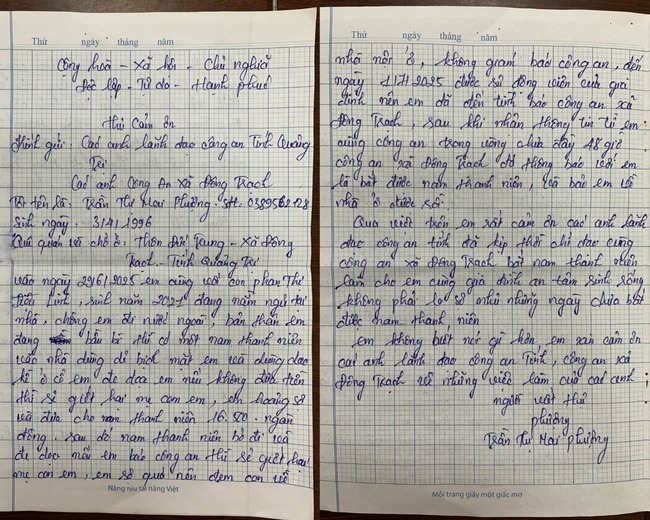 Thứ ngày tháng năm
Cộng hoà - Xã hội - Chủ nghĩa
Độc lập - Tự do - Hạnh phúc
Thư Cảm ơn
Kính gửi: Các anh lãnh đạo công an Tỉnh Quảng
Trị
Các anh Công An Xã Đông Trạch
Tôi tên là: Trần Thị Mai Phương. SĐT:
Sinh ngày. 3/4/1996
Quê quán và chỗ ở: Thôn Đức Trung - Xã Đông
Trạch - Tỉnh Quảng Trị
vào ngày 29/6/2025 em cùng với con phan Thị
Linh, sinh năm 2021 đang nằm ngủ tại
nhà, chồng em đi nước ngoài, bản thân em
đang bầu bì thì có một nam thanh niên
vào nhà dùng bịch mặt em và dùng dao
kề ở cổ em, đe doạ em nếu không đưa tiền
thì sẽ giết hai mẹ con em, em hoảng sợ
và đưa cho nam thanh niên ngàn
đồng. sau đó nam thanh niên bỏ đi và
đe doạ nếu em báo công an thì sẽ giết hai
mẹ con em, em sợ quá nên đem con về
Nâng niu tài năng Việt
Thứ ngày tháng năm
nhà nội ở, không giám báo công an, đến
ngày 1/7/2025 được sự động viên của gia
đình nên em đã đến trình báo công an xã
Đông Trạch, sau khi nhận thông tin từ em
cùng công an trong vòng chưa đầy 48 giờ
công an xã Đông Trạch đã thông báo với em
là bắt được nam thanh niên, và bảo em về
nhà ở được rồi.
Qua việc trên em rất cảm ơn các anh lãnh
đạo công an tỉnh đã kịp thời chỉ đạo cùng
công an xã Đông Trạch bắt nam thanh niên
làm cho em cùng gia đình an tâm sinh sống
không phải lo sợ như những ngày chưa bắt
được nam thanh niên
em không biết nói gì hơn, em xin cảm ơn
các anh lãnh đạo công an Tỉnh, công an xã
Đông Trạch về những việc làm của các anh
người viết thư
phương
Trần Thị Mai Phương
Mỗi trang giấy một giấc mơ